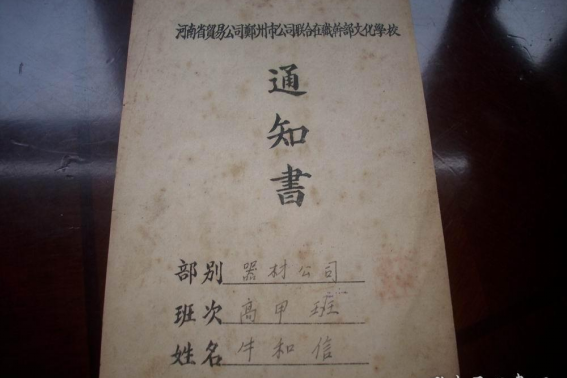 河南省貿易公司鄭州市公司联合在職幹部文化學校
通
知
書
部别 器材公司
班次 高甲班
姓名 牛和信